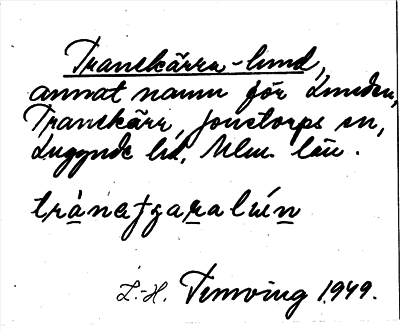 Tranekärra-lund,
annat namn för Lunden,
Tranekärr, Jonstorps sn,
Luggude hd, Mlm. län.
trànefgaralún
L.-H. Temving 1949.